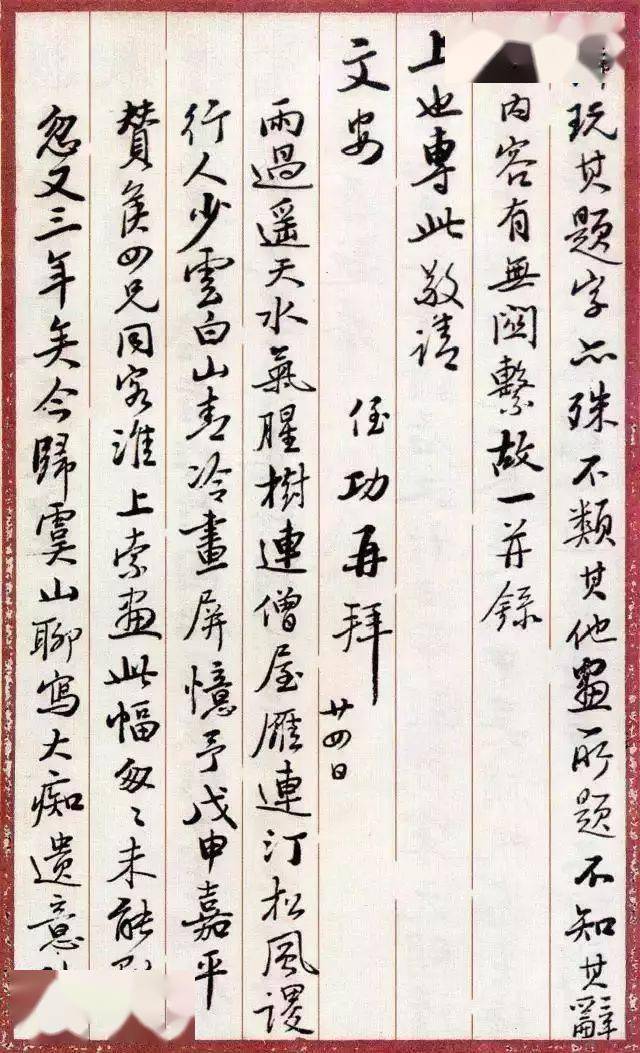 玩其題字亦殊不類其他畫所題不知其辭
内容有無関繫故一并録
上也專此敬請
文安
侄功再拜
廿四日
雨過遥天水氣腥樹連僧屋雁連汀松風謖
行人少雲白山青冷畫屏憶予戊申嘉平
贊侯四兄同客淮上索畫此幅匆〻未能
忽又三年矣今歸虞山聊寫大痴遺意